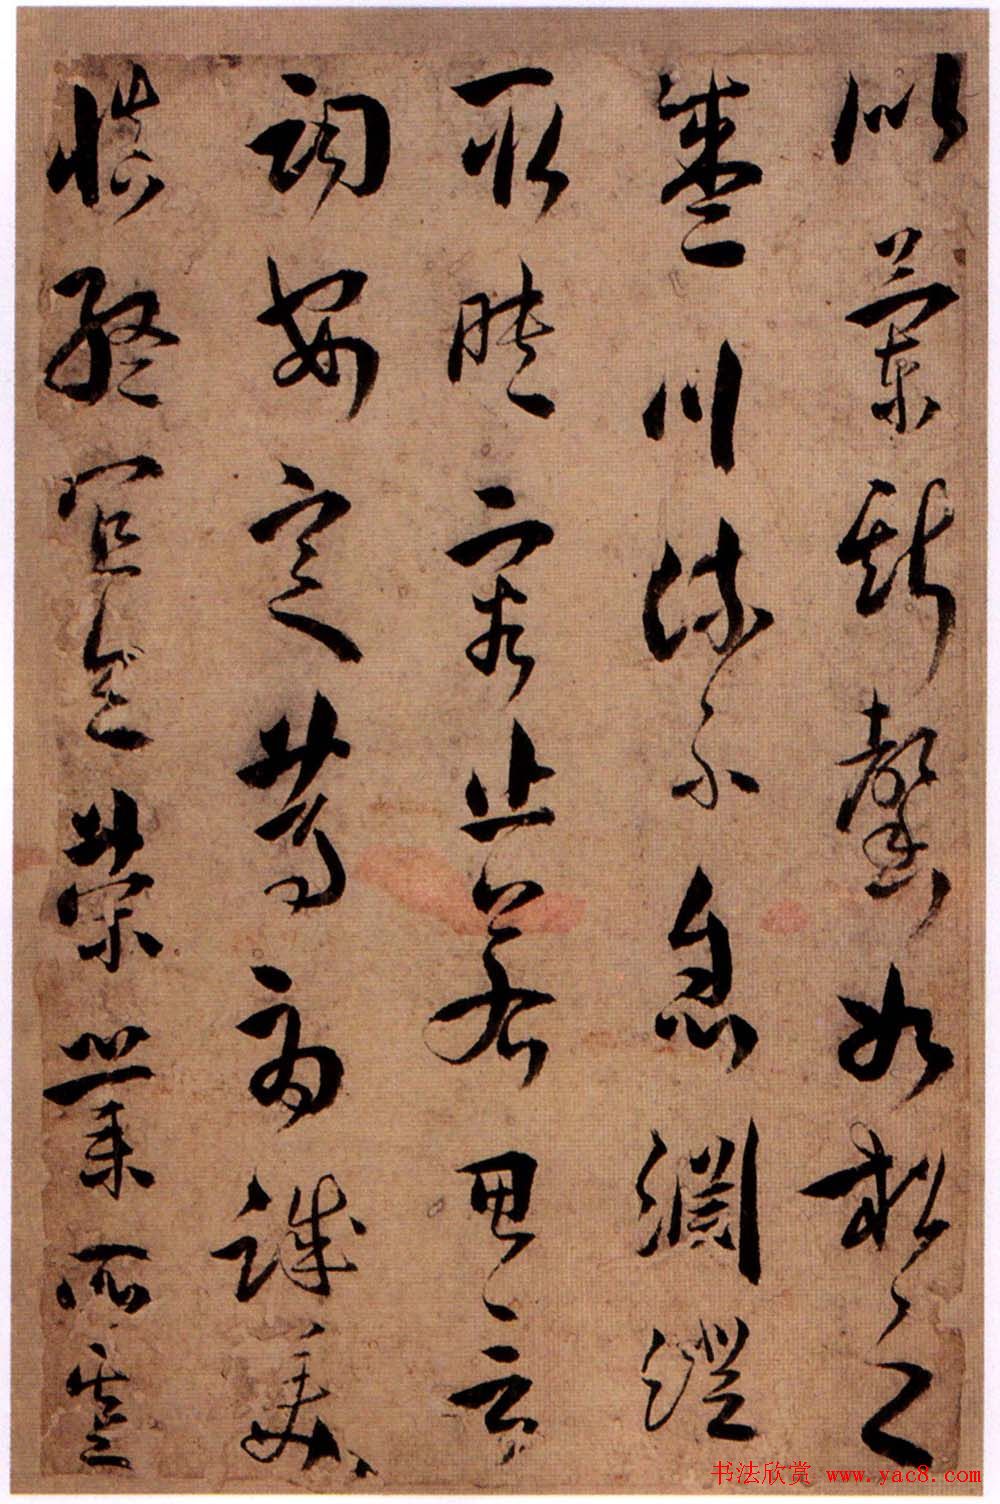 似蘭斯馨如松之
盛川流不息淵澄
取暎容止若思言
詞安定篤初誠美
慎終宜令榮業所基
书法欣赏 www.yac8.com